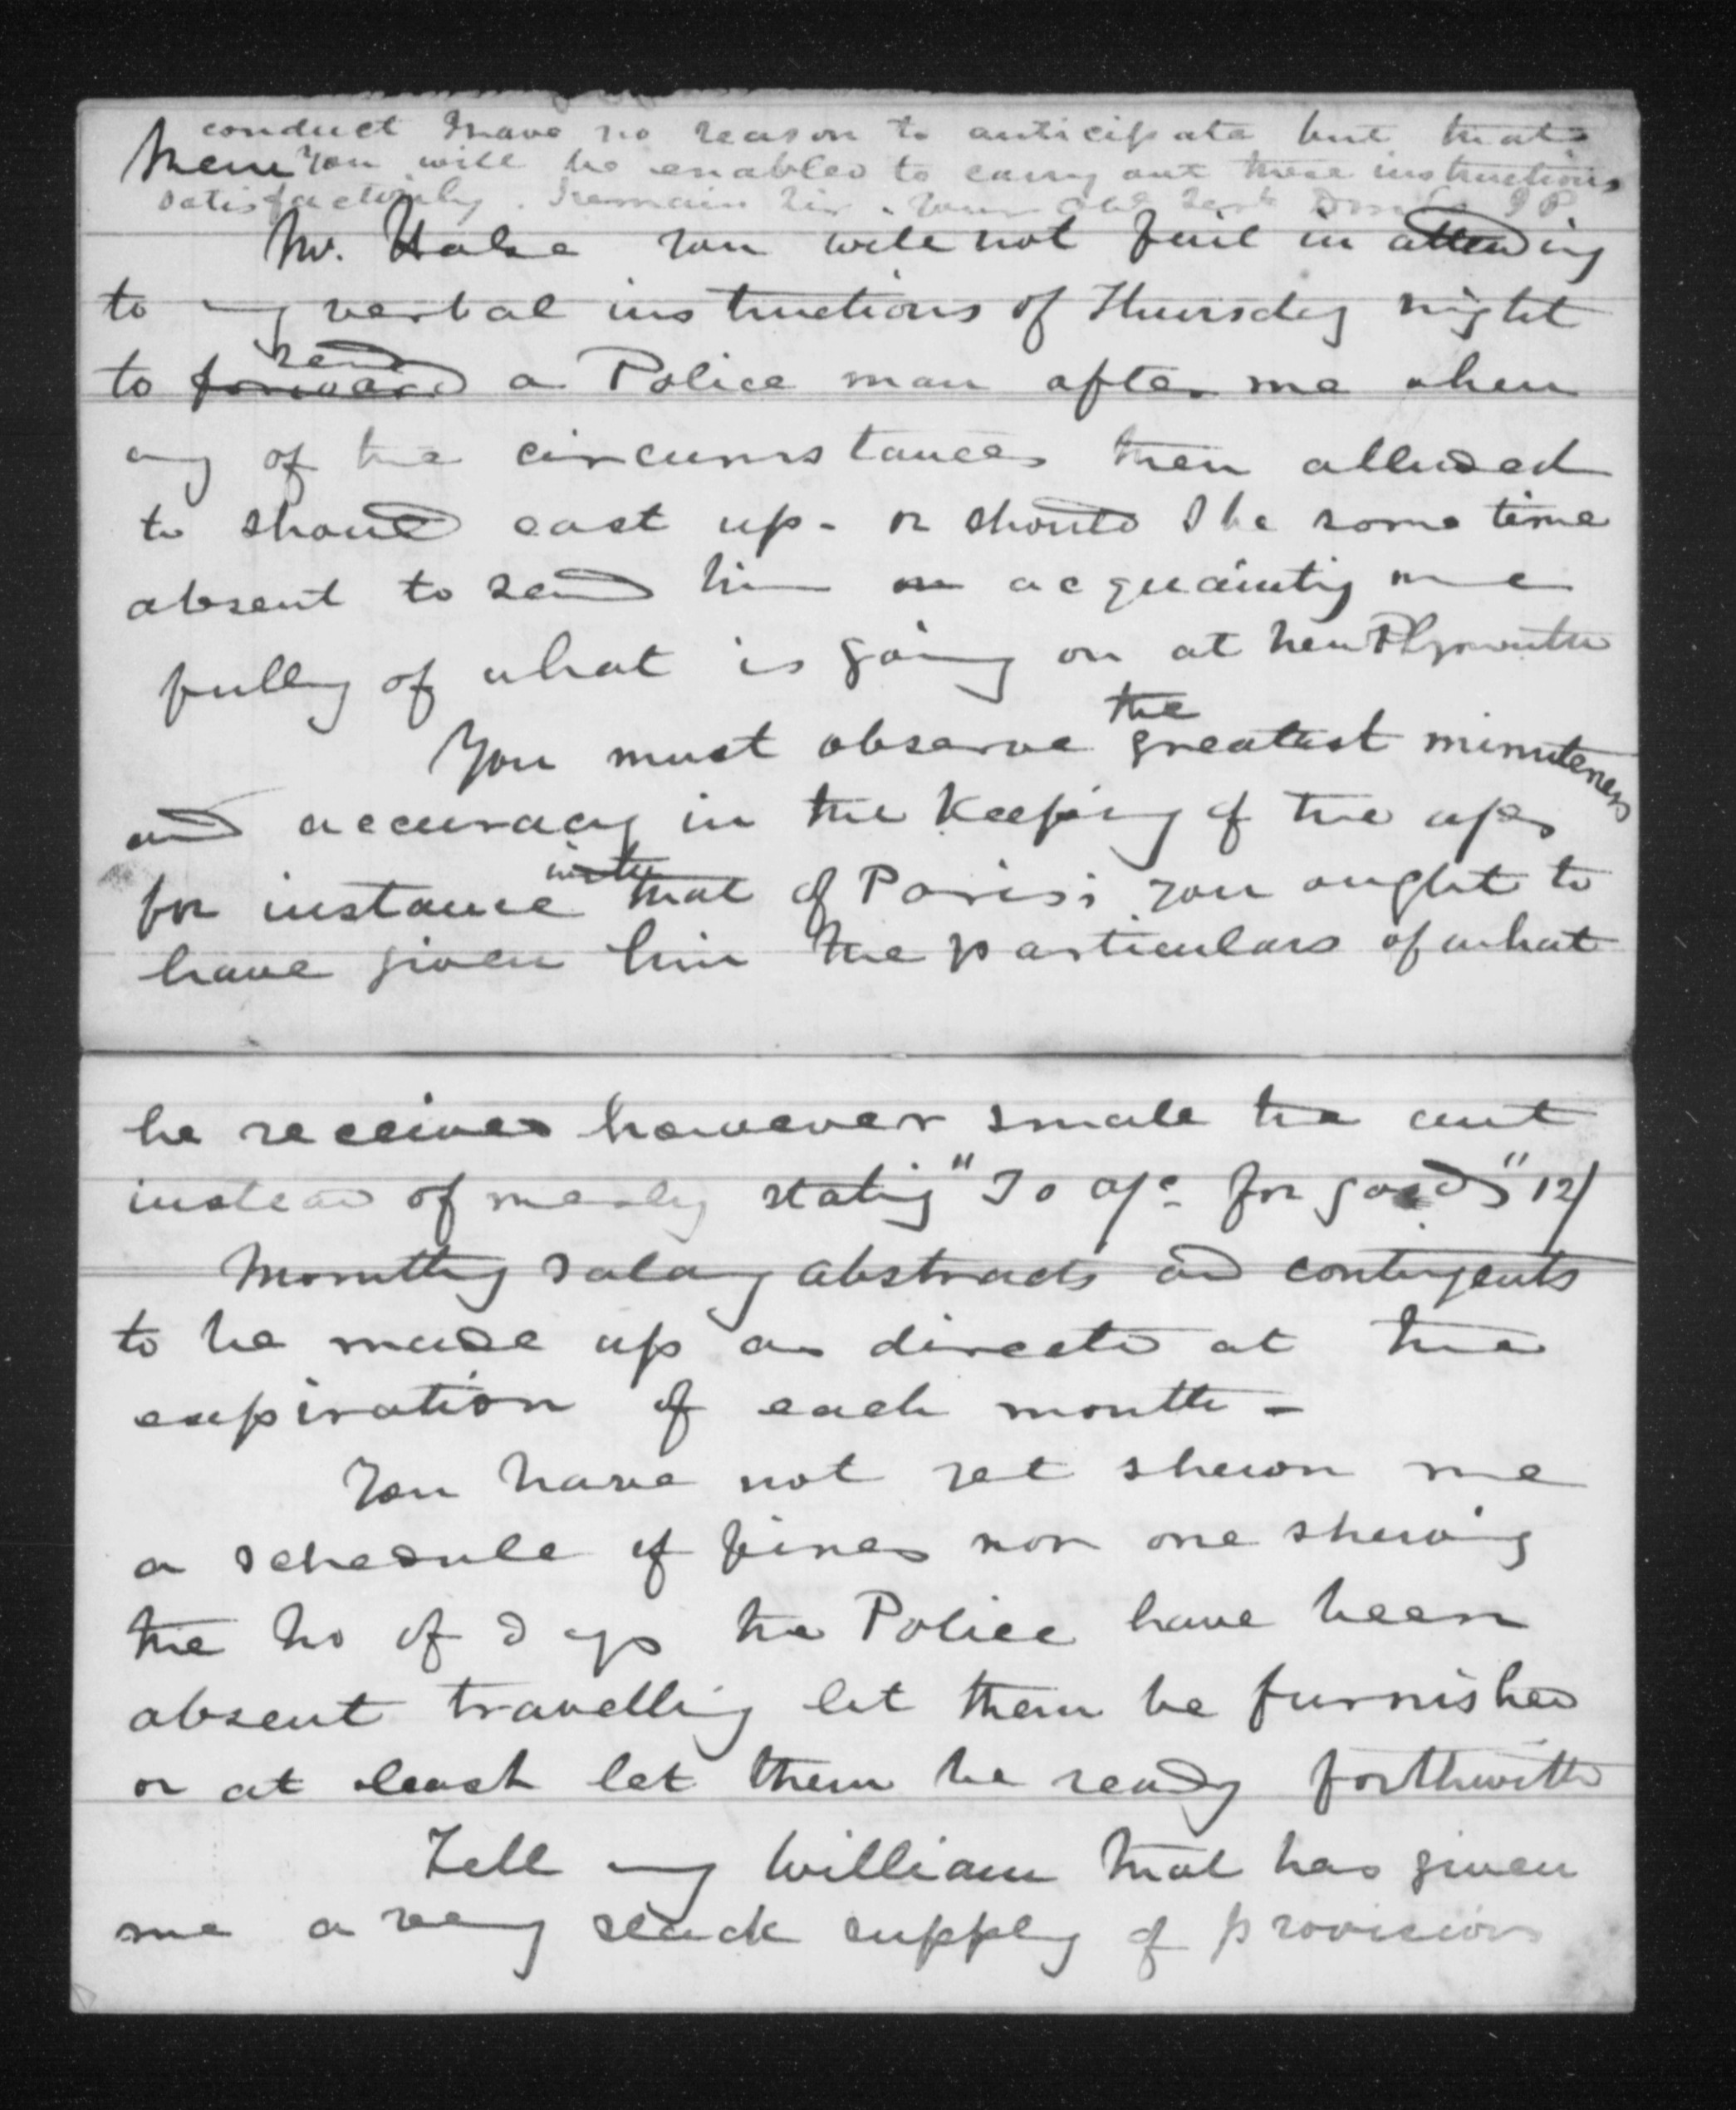 conduct I have no reason to anticipate but that
Mem You will be enabled to carry out these instructions
satisfactorily. I remain Sir. Your Obt Sert
Mr. Halse you will not fail in attending
to my verbal instructions of Thursday night
to forward send a Police man after me when
any of the circumstances then alluded
to should cast up - or should I be some time
absent to send him on acquainting me
fully of what is going on at New Plymouth
You must observe the greatest minuteness
and accuracy in the keeping of the a/cs
for instance that of Paris; you ought to
have given him the particulars of what
he receives however small the amt
instead of merely stating "To a/c for goods" 12/
Monthly salary abstracts and contingents
to be made up as directed at the
expiration of each month -
You have not yet shewn me
a schedule of fines nor one shewing
the No of days the Police have been
absent travelling let them be furnished
or at least let them be ready forthwith
Tell my William that has given
me a very slack supply of provisions